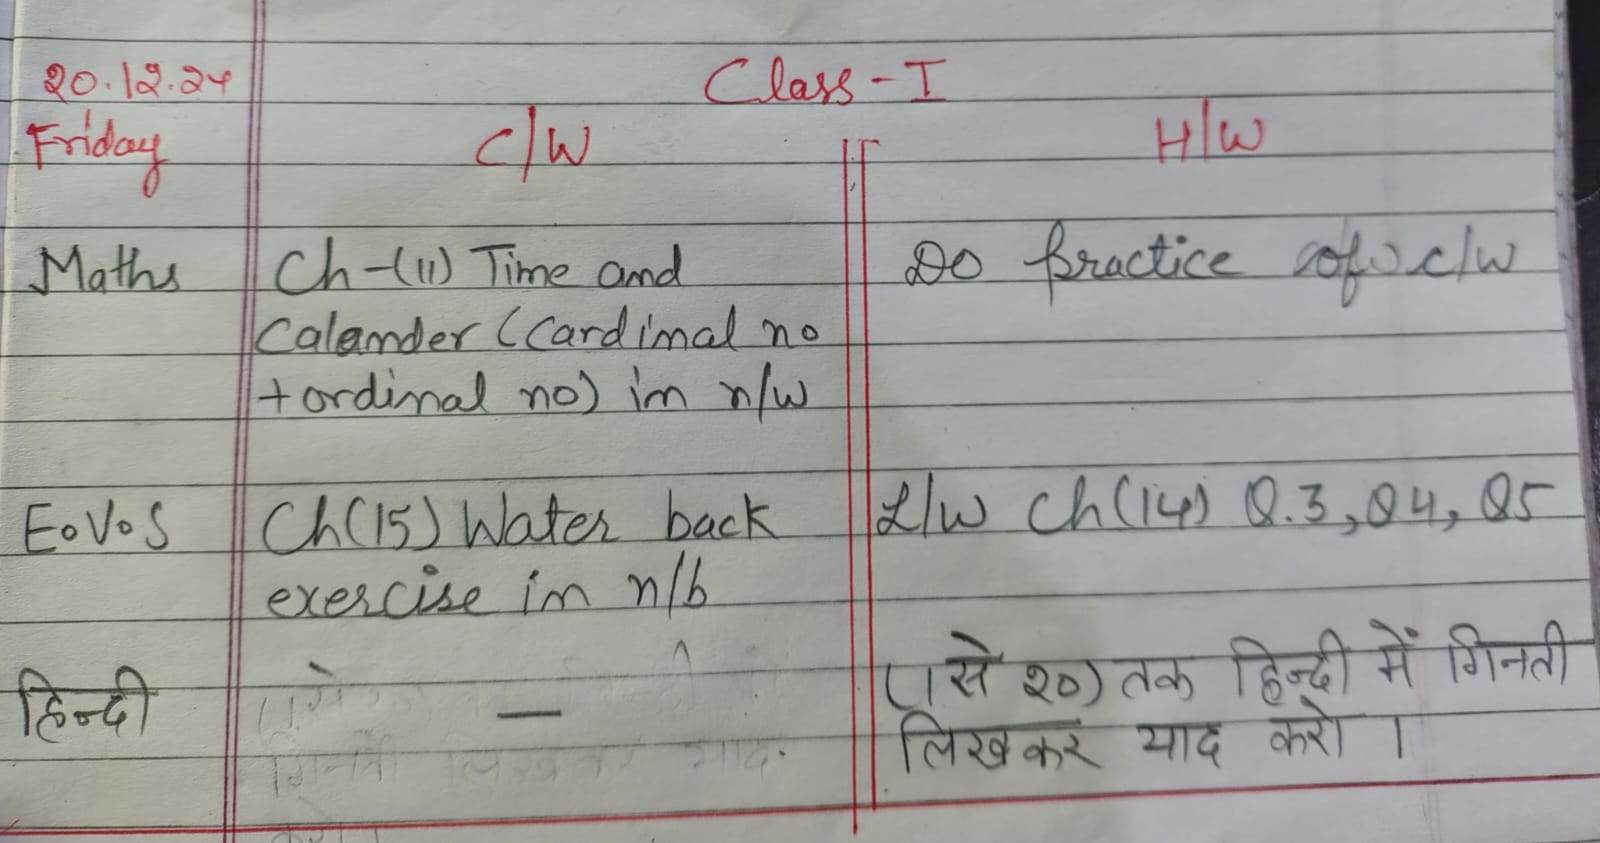 20.12.24 Class - I
Friday C/W H/W
Maths Ch-(11) Time and Do practice of c/w
Calander (Cardinal no
+ ordinal no) in n/w
E.V.S Ch(15) Water back L/w Ch(14) Q.3, Q4, Q5
exercise in n/b
हिन्दी — (1 से 20) तक हिन्दी में गिनती
लिखकर याद करो ।